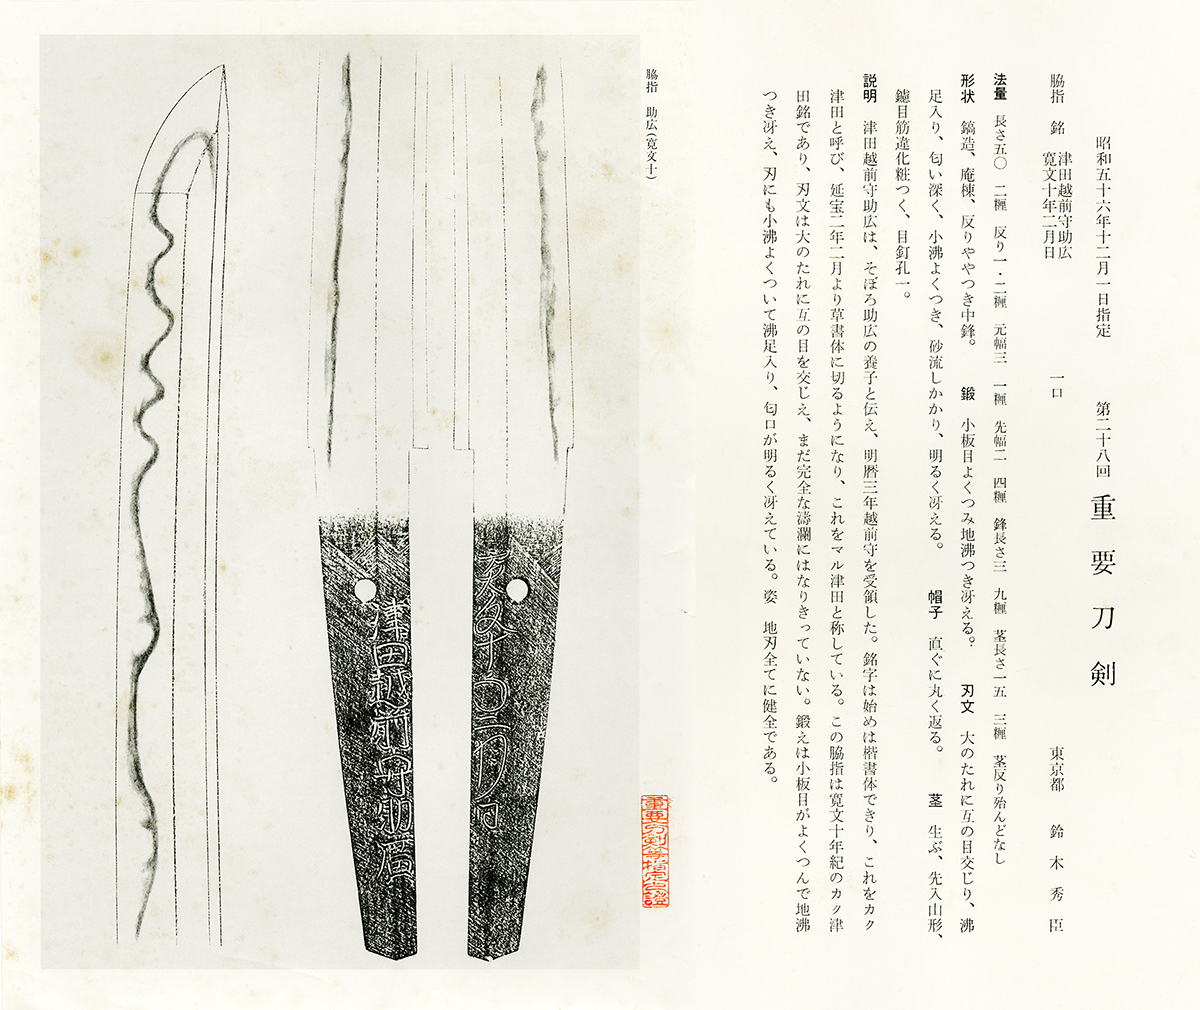 昭和五十六年十二月一日指定　第二十八回　重要刀剣
脇指　銘　津田越前守助広
寛文十年二月日
一口　東京都　鈴木秀臣
法量　長さ五〇　二糎　反り一・二糎　元幅三　一糎　先幅二　四糎　鋒長さ三　九糎　茎長さ一五　三糎　茎反り殆んどなし
形状　鎬造、庵棟、反りややつき中鋒。　鍛　小板目よくつみ地沸つき冴える。　刃文　大のたれに互の目交じり、沸
足入り、匂い深く、小沸よくつき、砂流しかかり、明るく冴える。　帽子　直ぐに丸く返る。　茎　生ぶ、先入山形、
鑢目筋違化粧つく、目釘孔一。
説明　津田越前守助広は、そぼろ助広の養子と伝え、明暦三年越前守を受領した。銘字は始めは楷書体できり、これをカク
津田と呼び、延宝二年二月より草書体に切るようになり、これをマル津田と称している。この脇指は寛文十年紀のカク津
田銘であり、刃文は大のたれに互の目を交じえ、まだ完全な濤瀾にはなりきっていない。鍛えは小板目がよくつんで地沸
つき冴え、刃にも小沸よくついて沸足入り、匂口が明るく冴えている。姿　地刃全てに健全である。
脇指　助広(寛文十)
寛文十年二月日
津田越前守助廣
重要刀剣等指定之證